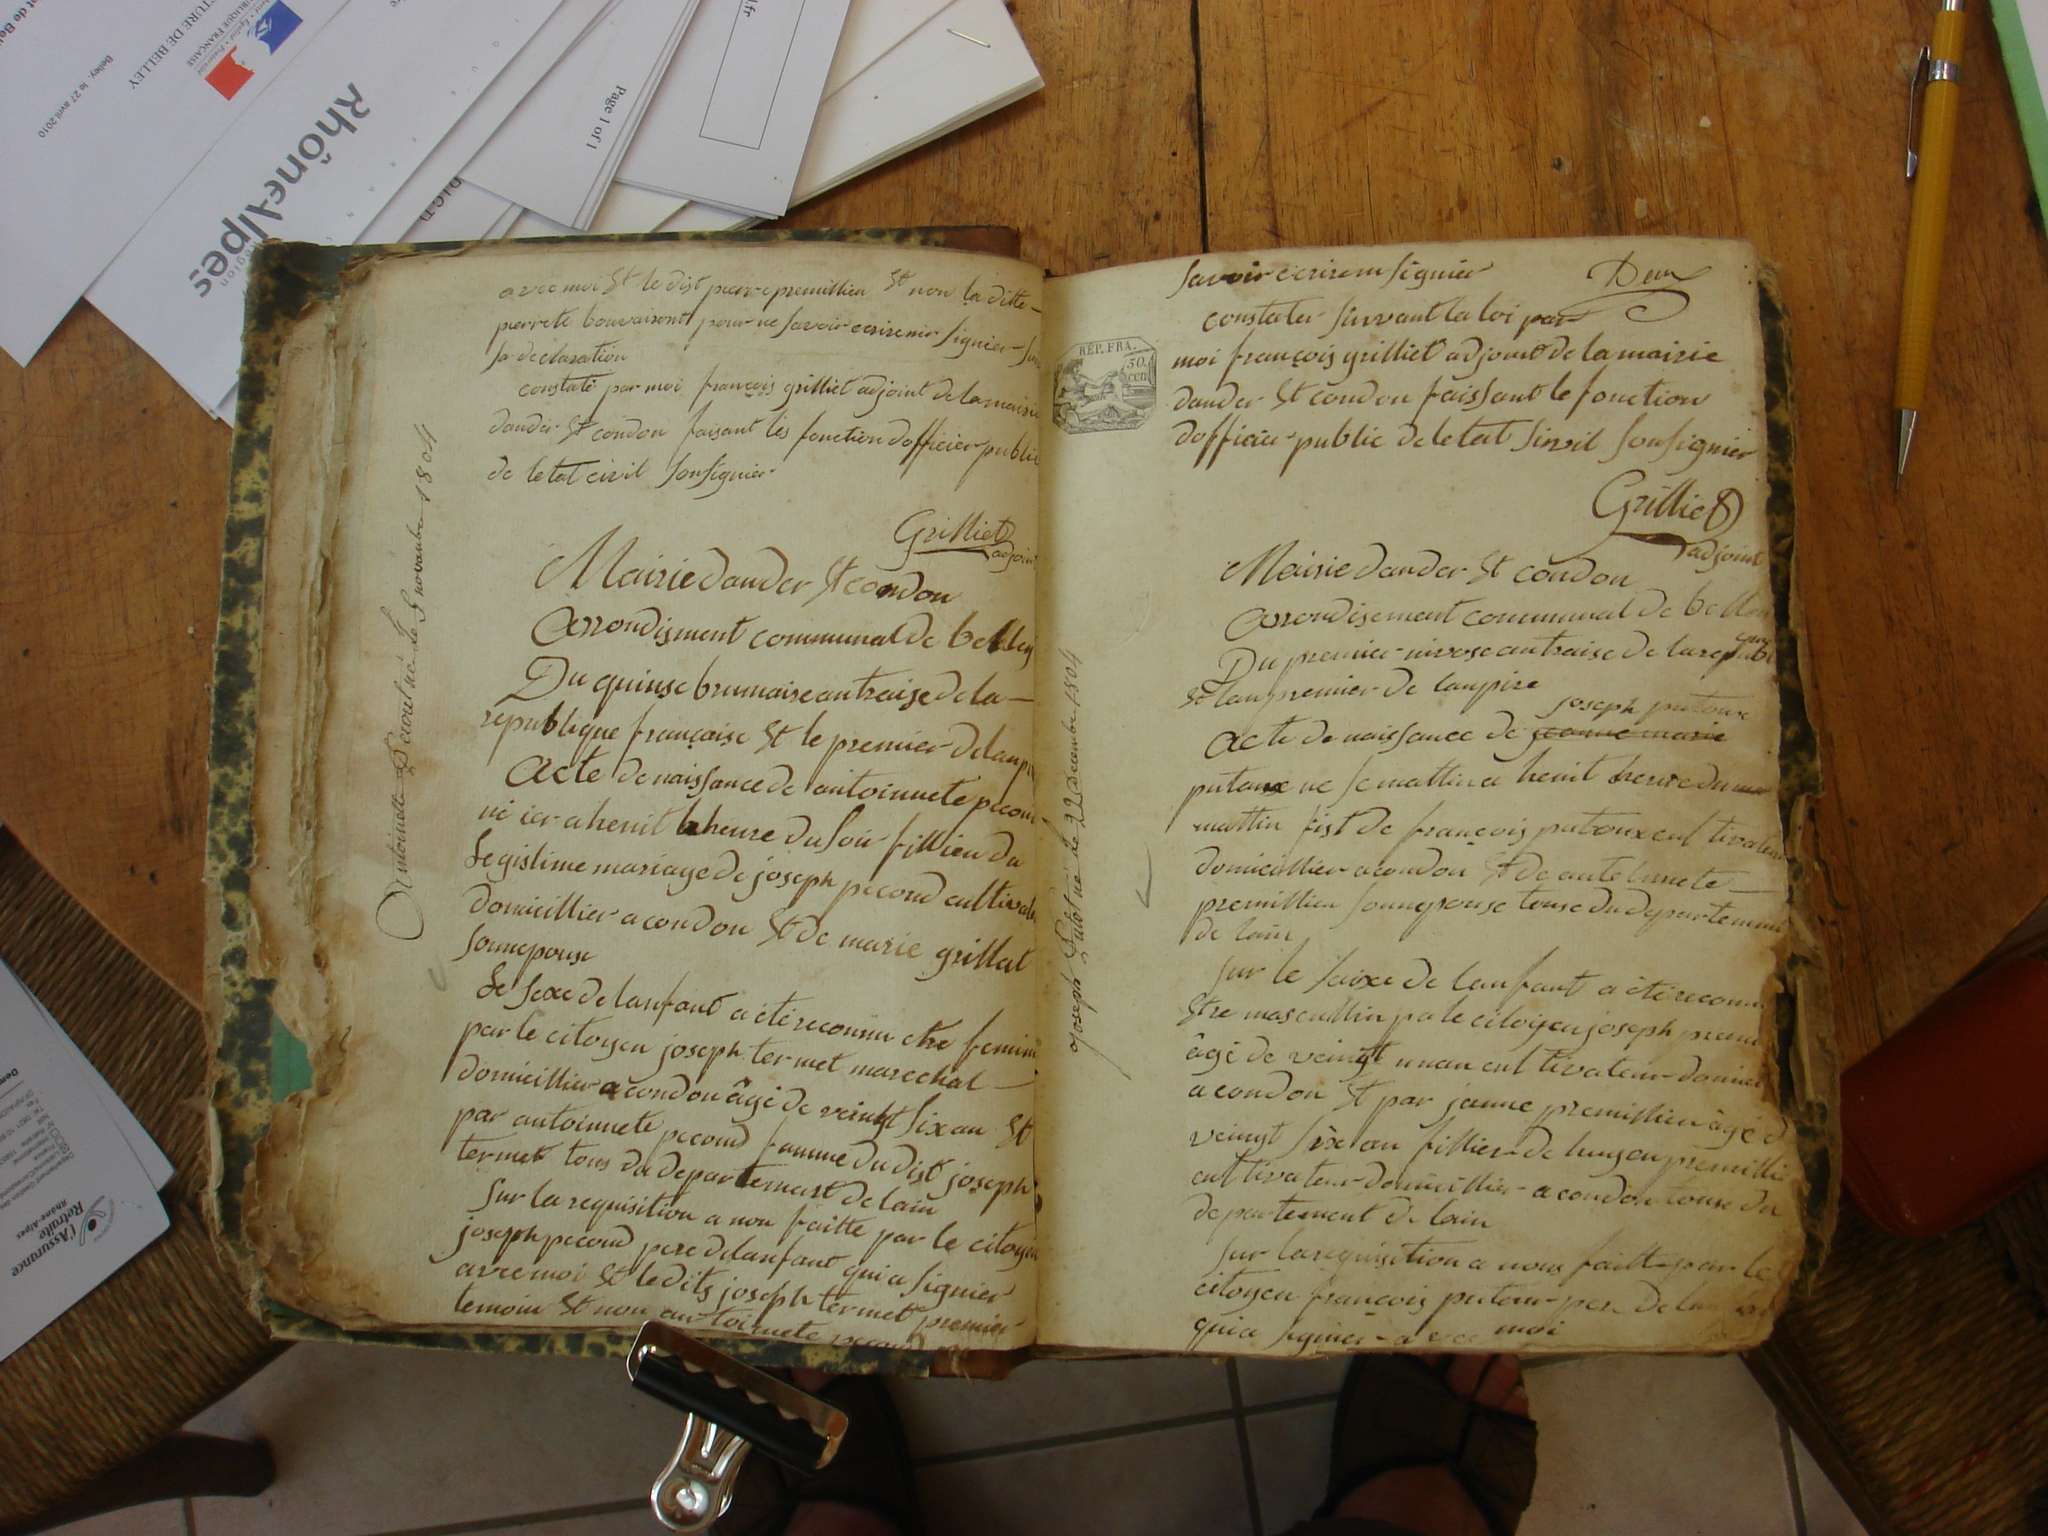 TURE DE BELLEY
RÉPUBLIQUE FRANÇAISE
Belley, le 27 avril 2010
Rhône-Alpes
Page 1 of 1
.fr
avec moi et le dist pierre premillieu et non la ditte
pierrete bouvairont pour ne savoir ecrire nir signier
sa declaration
constaté par moi françois grilliet adjoint de la mairie
dander et condon faisant les fonction dofficier public
de letat civil sousignier
Grilliet
adjoint
Mairie dander et condon
Arrondisment communal de belley
Du quinse brumaire an traise de la
republique française et le premier de lanp
Acte de naissance de antoinnete pecou
né ier a henit heure du soir fillieu du
legistime mariage de joseph pecoud cultivate
domicillier a condon et de marie grillat
sonnepouse
Le sexe de lanfant a été reconnu etre femini
par le citoyen joseph termet marechal
domicillier a condon âgé de veinht six an et
par antoinnete pecoud famme du dist joseph
termet tous du departemant de lain
Sur la requisition a nou faitte par le citoyen
joseph pecoud pere de lanfant qui a signier
avec moi et ledits joseph termet premier
temoin et non antoinnete pecoud
Antoinette Pecoul né le 5 novembre 1804
savoir ecrire ni signier
constater suivant la loi par
moi françois grilliet adjoint de la mairie
dander et condon faissant le fonction
dofficier public de letat sivil sousignier
RÉP. FRA.
50.
cen
Grilliet
adjoint
Mairie dander et condon
Arrondisement communal de bellei
Du premier nivose an traise de la republi
et lan premier de lanpire
joseph putoux
Acte de naissance de jeanne marie
putoux né se mattin a henit heure du
mattin fist de françois putoux cultivateur
domicillier a condon et de antelmete
premillieu sonnepouse touse du departement
de lain
Sur le saixe de lanfant a été reconnu
etre mascullin pa le citoyen joseph premi
âgé de veingt un an cultivateur domici
a condon et par jeanne premillieu âgé d
veingt six an fillier de hugen premillie
cultivateur domicillier a condon touse du
departement de lain
Sur la requisition a nous faitt par le
citoyen françois putoux pere de lanfant
qui a signier avec moi
Joseph Putod né le 22 Decembre 1804
l'Assurance
Retraite
Rhône-Alpes